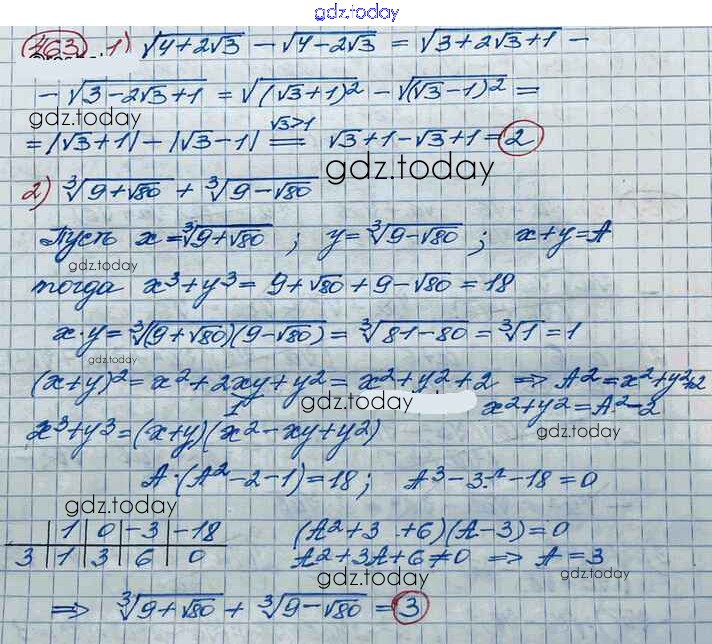 gdz.today
463 1) √(4+2√3) − √(4−2√3) = √(3+2√3+1) −
− √(3−2√3+1) = √((√3+1)²) − √((√3−1)²) =
gdz.today
= |√3+1| − |√3−1| =(√3>1)= √3+1−√3+1 = 2
gdz.today
2) ∛(9+√80) + ∛(9−√80)
Пусть x = ∛(9+√80) ; y = ∛(9−√80) ; x+y=A
gdz.today
тогда x³+y³ = 9+√80+9−√80 = 18
x·y = ∛((9+√80)(9−√80)) = ∛(81−80) = ∛1 = 1
gdz.today
(x+y)² = x²+2xy+y² = x²+y²+2 ⇒ A² = x²+y²+2
1
gdz.today
x²+y² = A²−2
x³+y³ = (x+y)(x²−xy+y²)
gdz.today
A·(A²−2−1)=18 ; A³−3 −18=0
gdz.today
1 0 −3 −18 (A²+3 +6)(A−3)=0
3 1 3 6 0 A²+3A+6≠0 ⇒ A=3
gdz.today gdz.today
⇒ ∛(9+√80) + ∛(9−√80) = 3